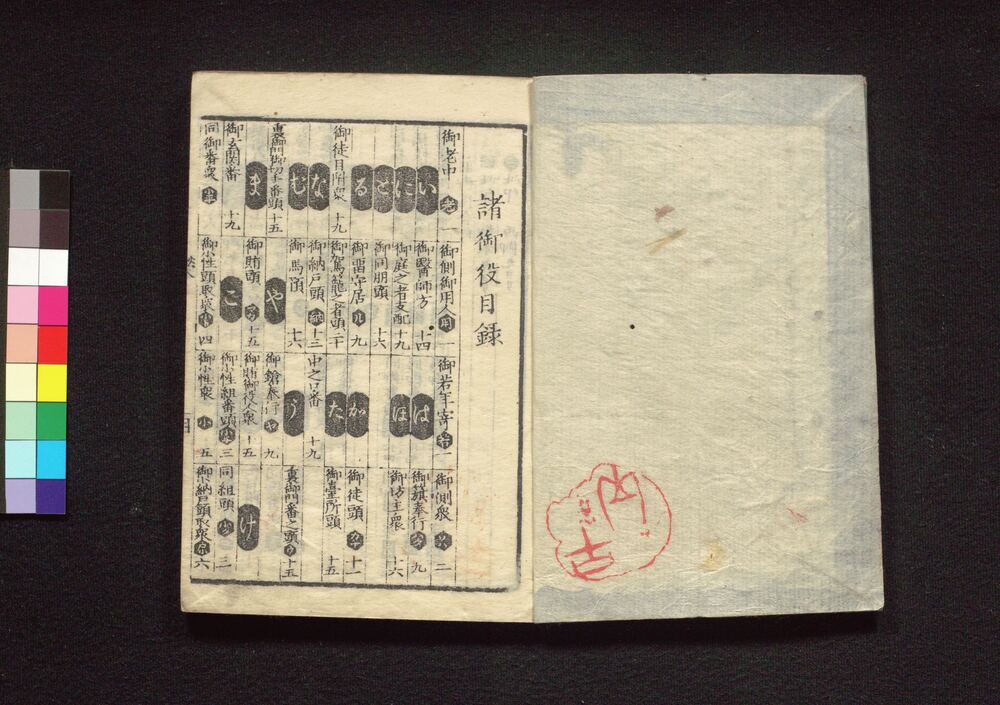 諸御役目録
御老中 老 一
御側御用人 用 一
御若年寄 若 一
御側衆 二
い
御醫師方 十四
は
御簱奉行 九
に
御庭之者支配 十九
ほ
御坊主衆 十六
と
御同朋頭 十六
る
御留守居 ル 九
か
御徒頭 十一
御徒目附衆 十九
御駕籠之者頭 二十
た
御臺所頭 十五
な
御納戸頭 納 十三
中之口番 十九
む
御馬預 十六
う
裏御門番之頭 ウ 十五
裏御門御切手番頭 十五
や
御鎗奉行 ヤ 九
ま
御賄頭 十五
御賄御役人衆 十五
け
御玄関番 十九
こ
御小性組番頭 三
同組頭 三
同御番衆
御小性頭取衆 四
御小性衆 小 五
御小納戸頭取衆 六